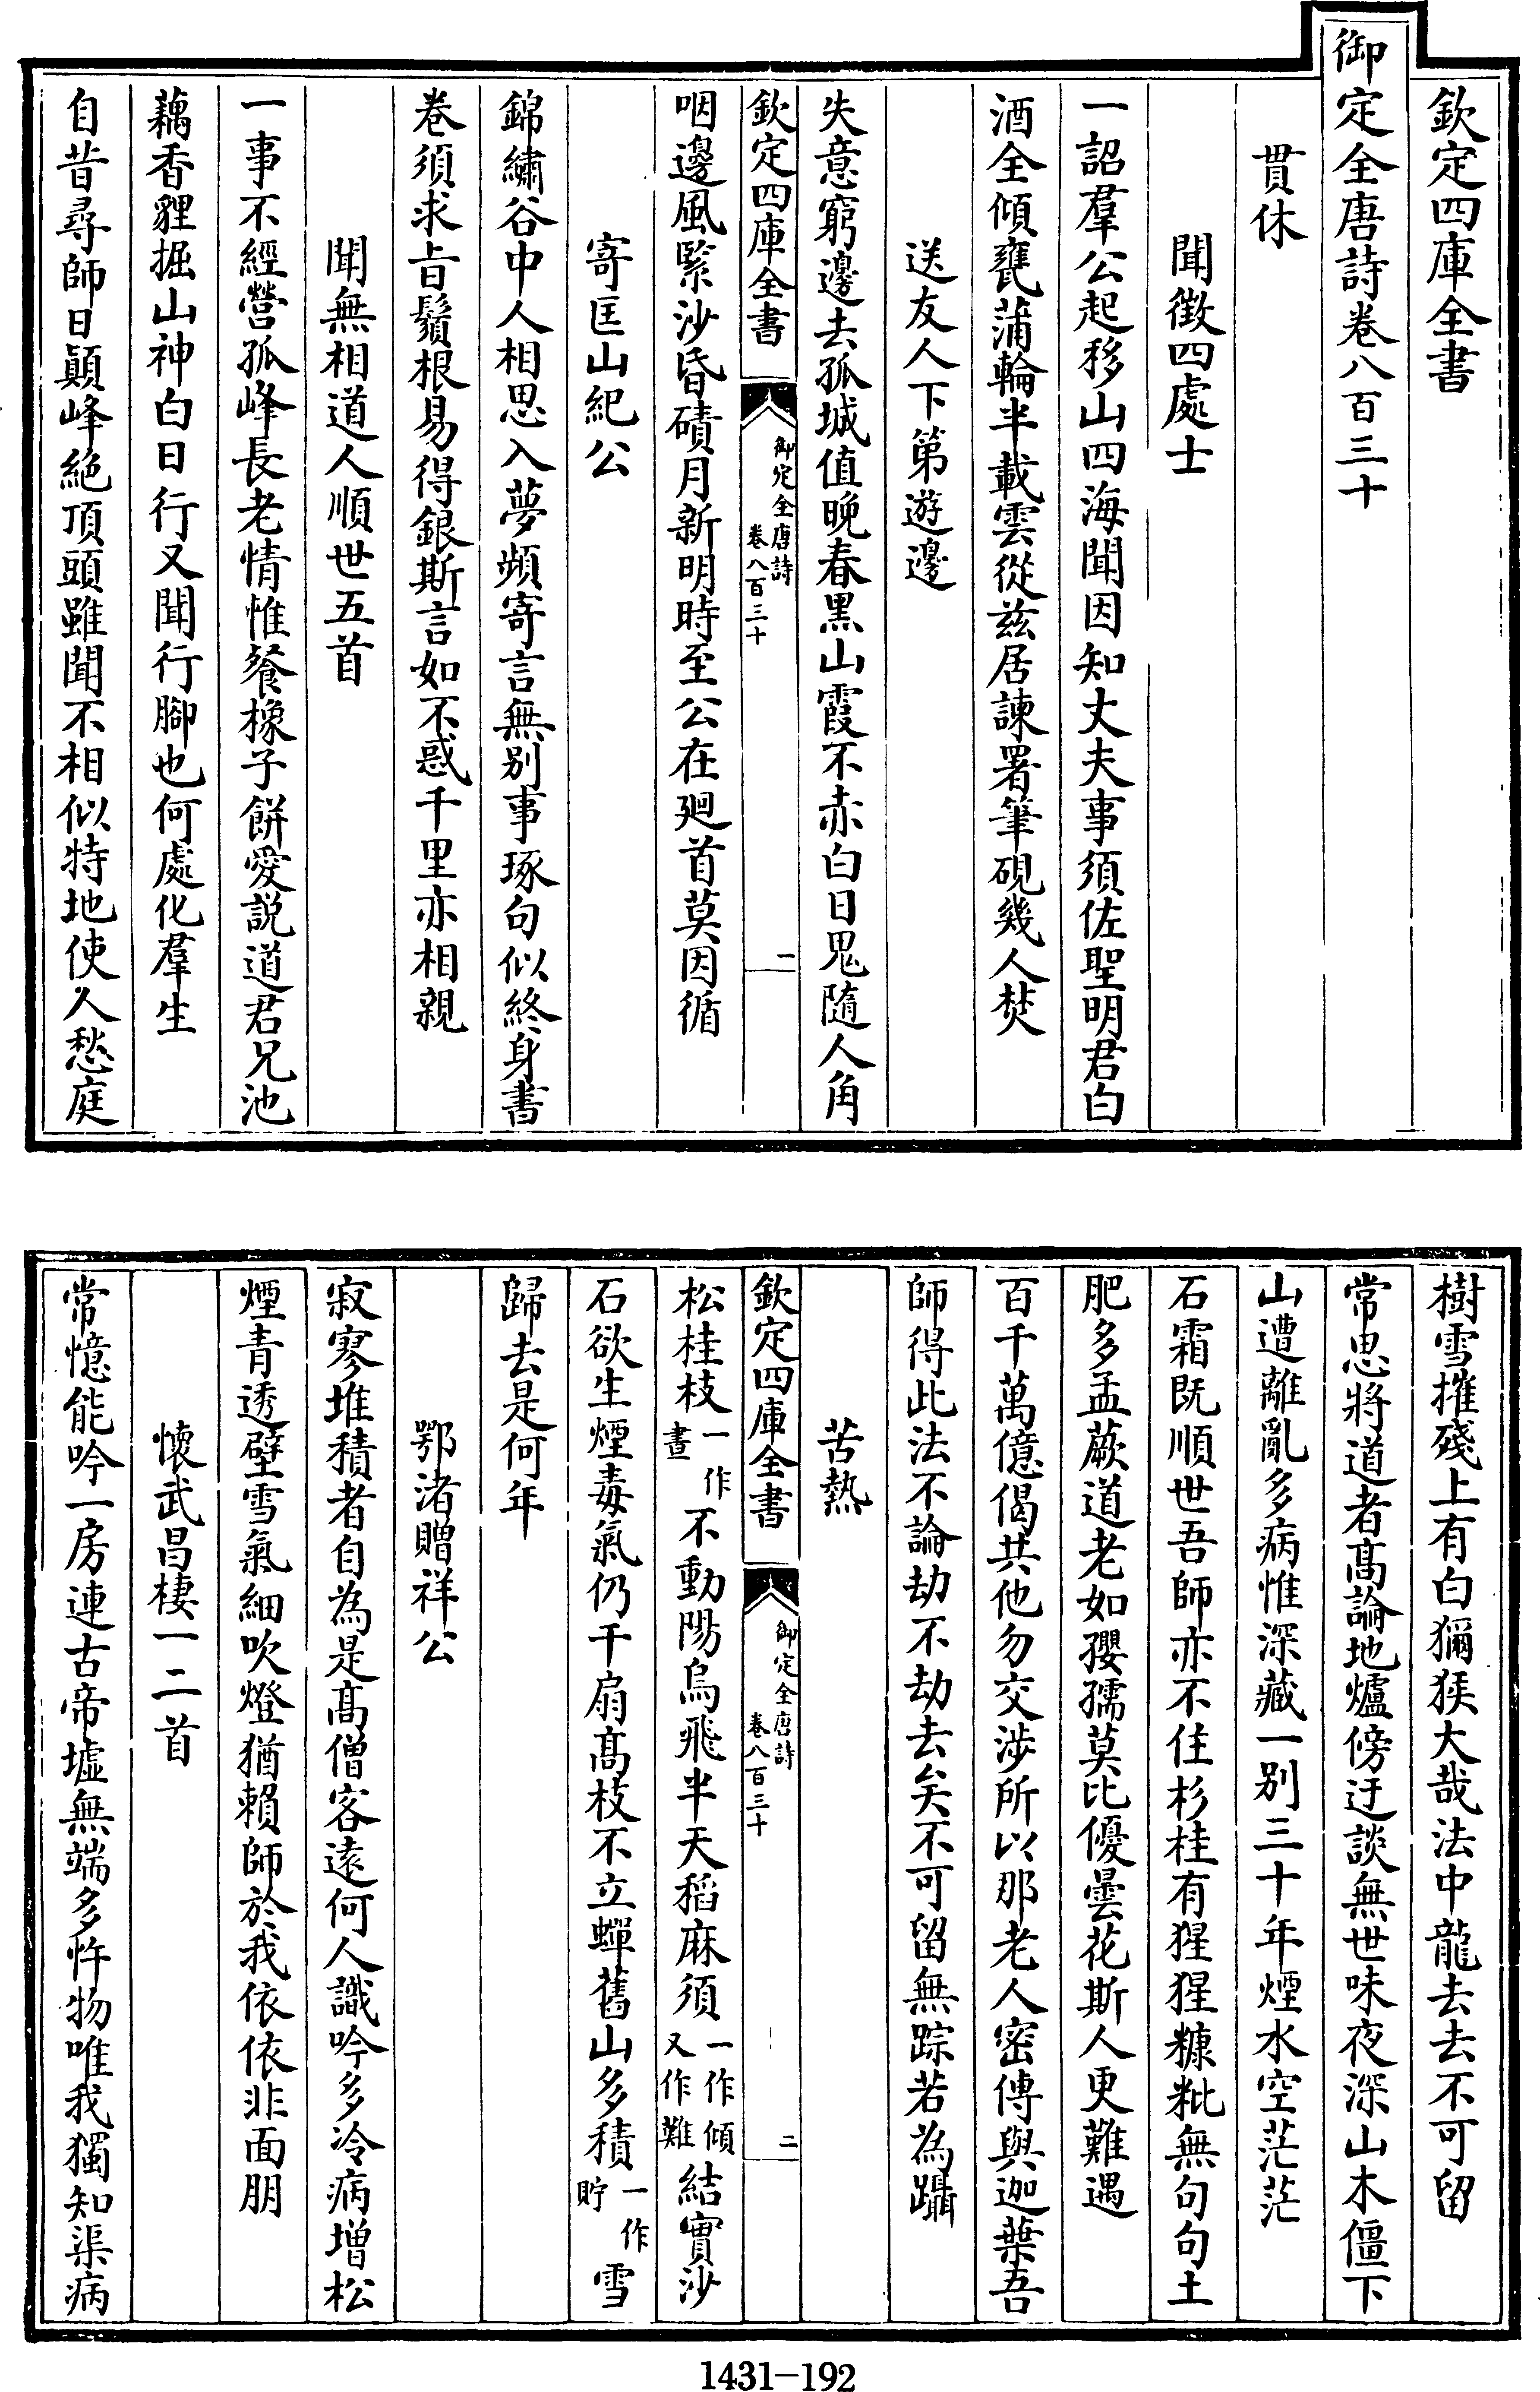 欽定四庫全書
御定全唐詩卷八百三十
貫休
聞徵四處士
一詔羣公起移山四海聞因知丈夫事須佐聖明君白
酒全傾甕蒲輪半載雲從兹居諫署筆硯幾人焚
送友人下第遊邊
失意窮邊去孤城值晚春黑山霞不赤白日鬼隨人角
欽定四庫全書
御定全唐詩
卷八百三十
一
咽邊風緊沙昏磧月新明時至公在廻首莫因循
寄匡山紀公
錦繡谷中人相思入夢頻寄言無别事琢句似終身書
卷須求旨鬚根易得銀斯言如不惑千里亦相親
聞無相道人順世五首
一事不經營孤峰長老情惟餐橡子餅愛説道君兄池
藕香貍掘山神白日行又聞行腳也何處化羣生
自昔尋師日顛峰絶頂頭雖聞不相似特地使人愁庭
樹雪摧殘上有白獼猴大哉法中龍去去不可留
常思將道者髙論地爐傍迂談無世味夜深山木僵下
山遭離亂多病惟深藏一别三十年煙水空茫茫
石霜既順世吾師亦不住杉桂有猩猩糠粃無句句土
肥多孟蕨道老如孾孺莫比優曇花斯人更難遇
百千萬億偈共他勿交涉所以那老人密傳與迦葉吾
師得此法不論劫不劫去矣不可留無踪若為躡
苦熱
欽定四庫全書
御定全唐詩
卷八百三十
二
松桂枝一作晝不動陽烏飛半天稻麻須一作傾又作難結實沙
石欲生煙毒氣仍千扇髙枝不立蟬舊山多積一作貯雪
歸去是何年
鄂渚贈祥公
寂寥堆積者自為是髙僧客遠何人識吟多冷病增松
煙青透壁雪氣細吹燈猶賴師於我依依非面朋
懷武昌棲一二首
常憶能吟一房連古帝墟無端多忤物唯我獨知渠病
1431-192